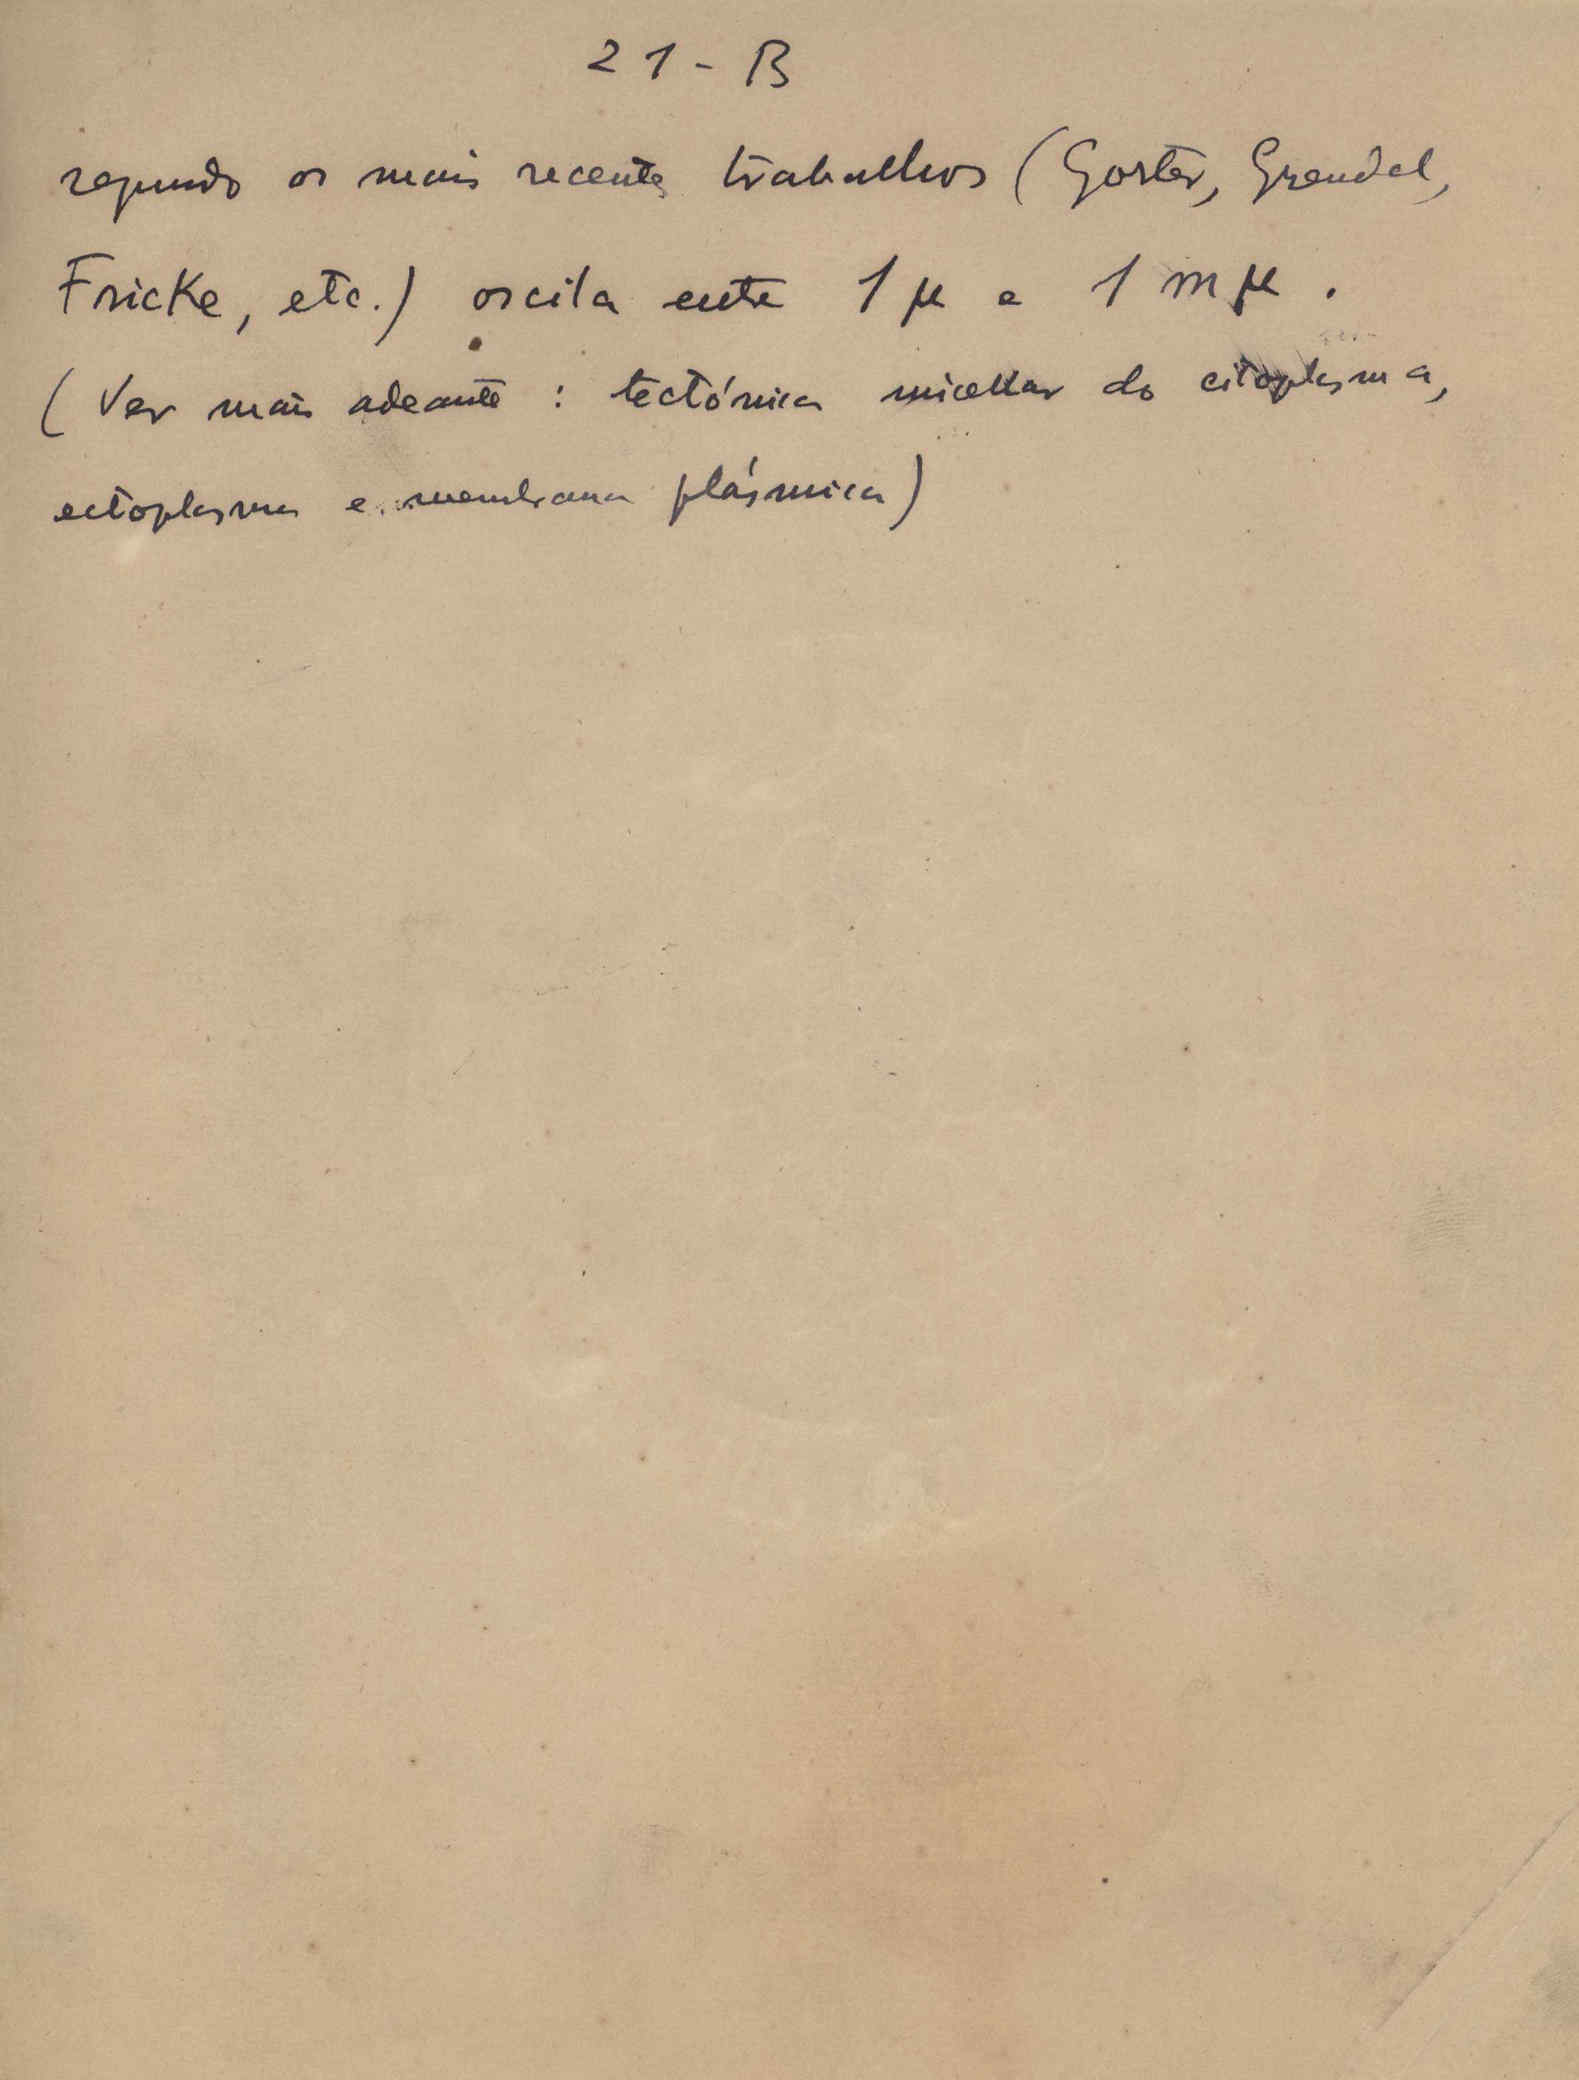 21 - B
segundo os mais recentes trabalhos (Gorter, Grendel,
Fricke, etc.) oscila entre 1 μ e 1 mμ .
(Ver mais adeante : tectónica micellar do citoplasma,
ectoplasma e membrana plásmica)